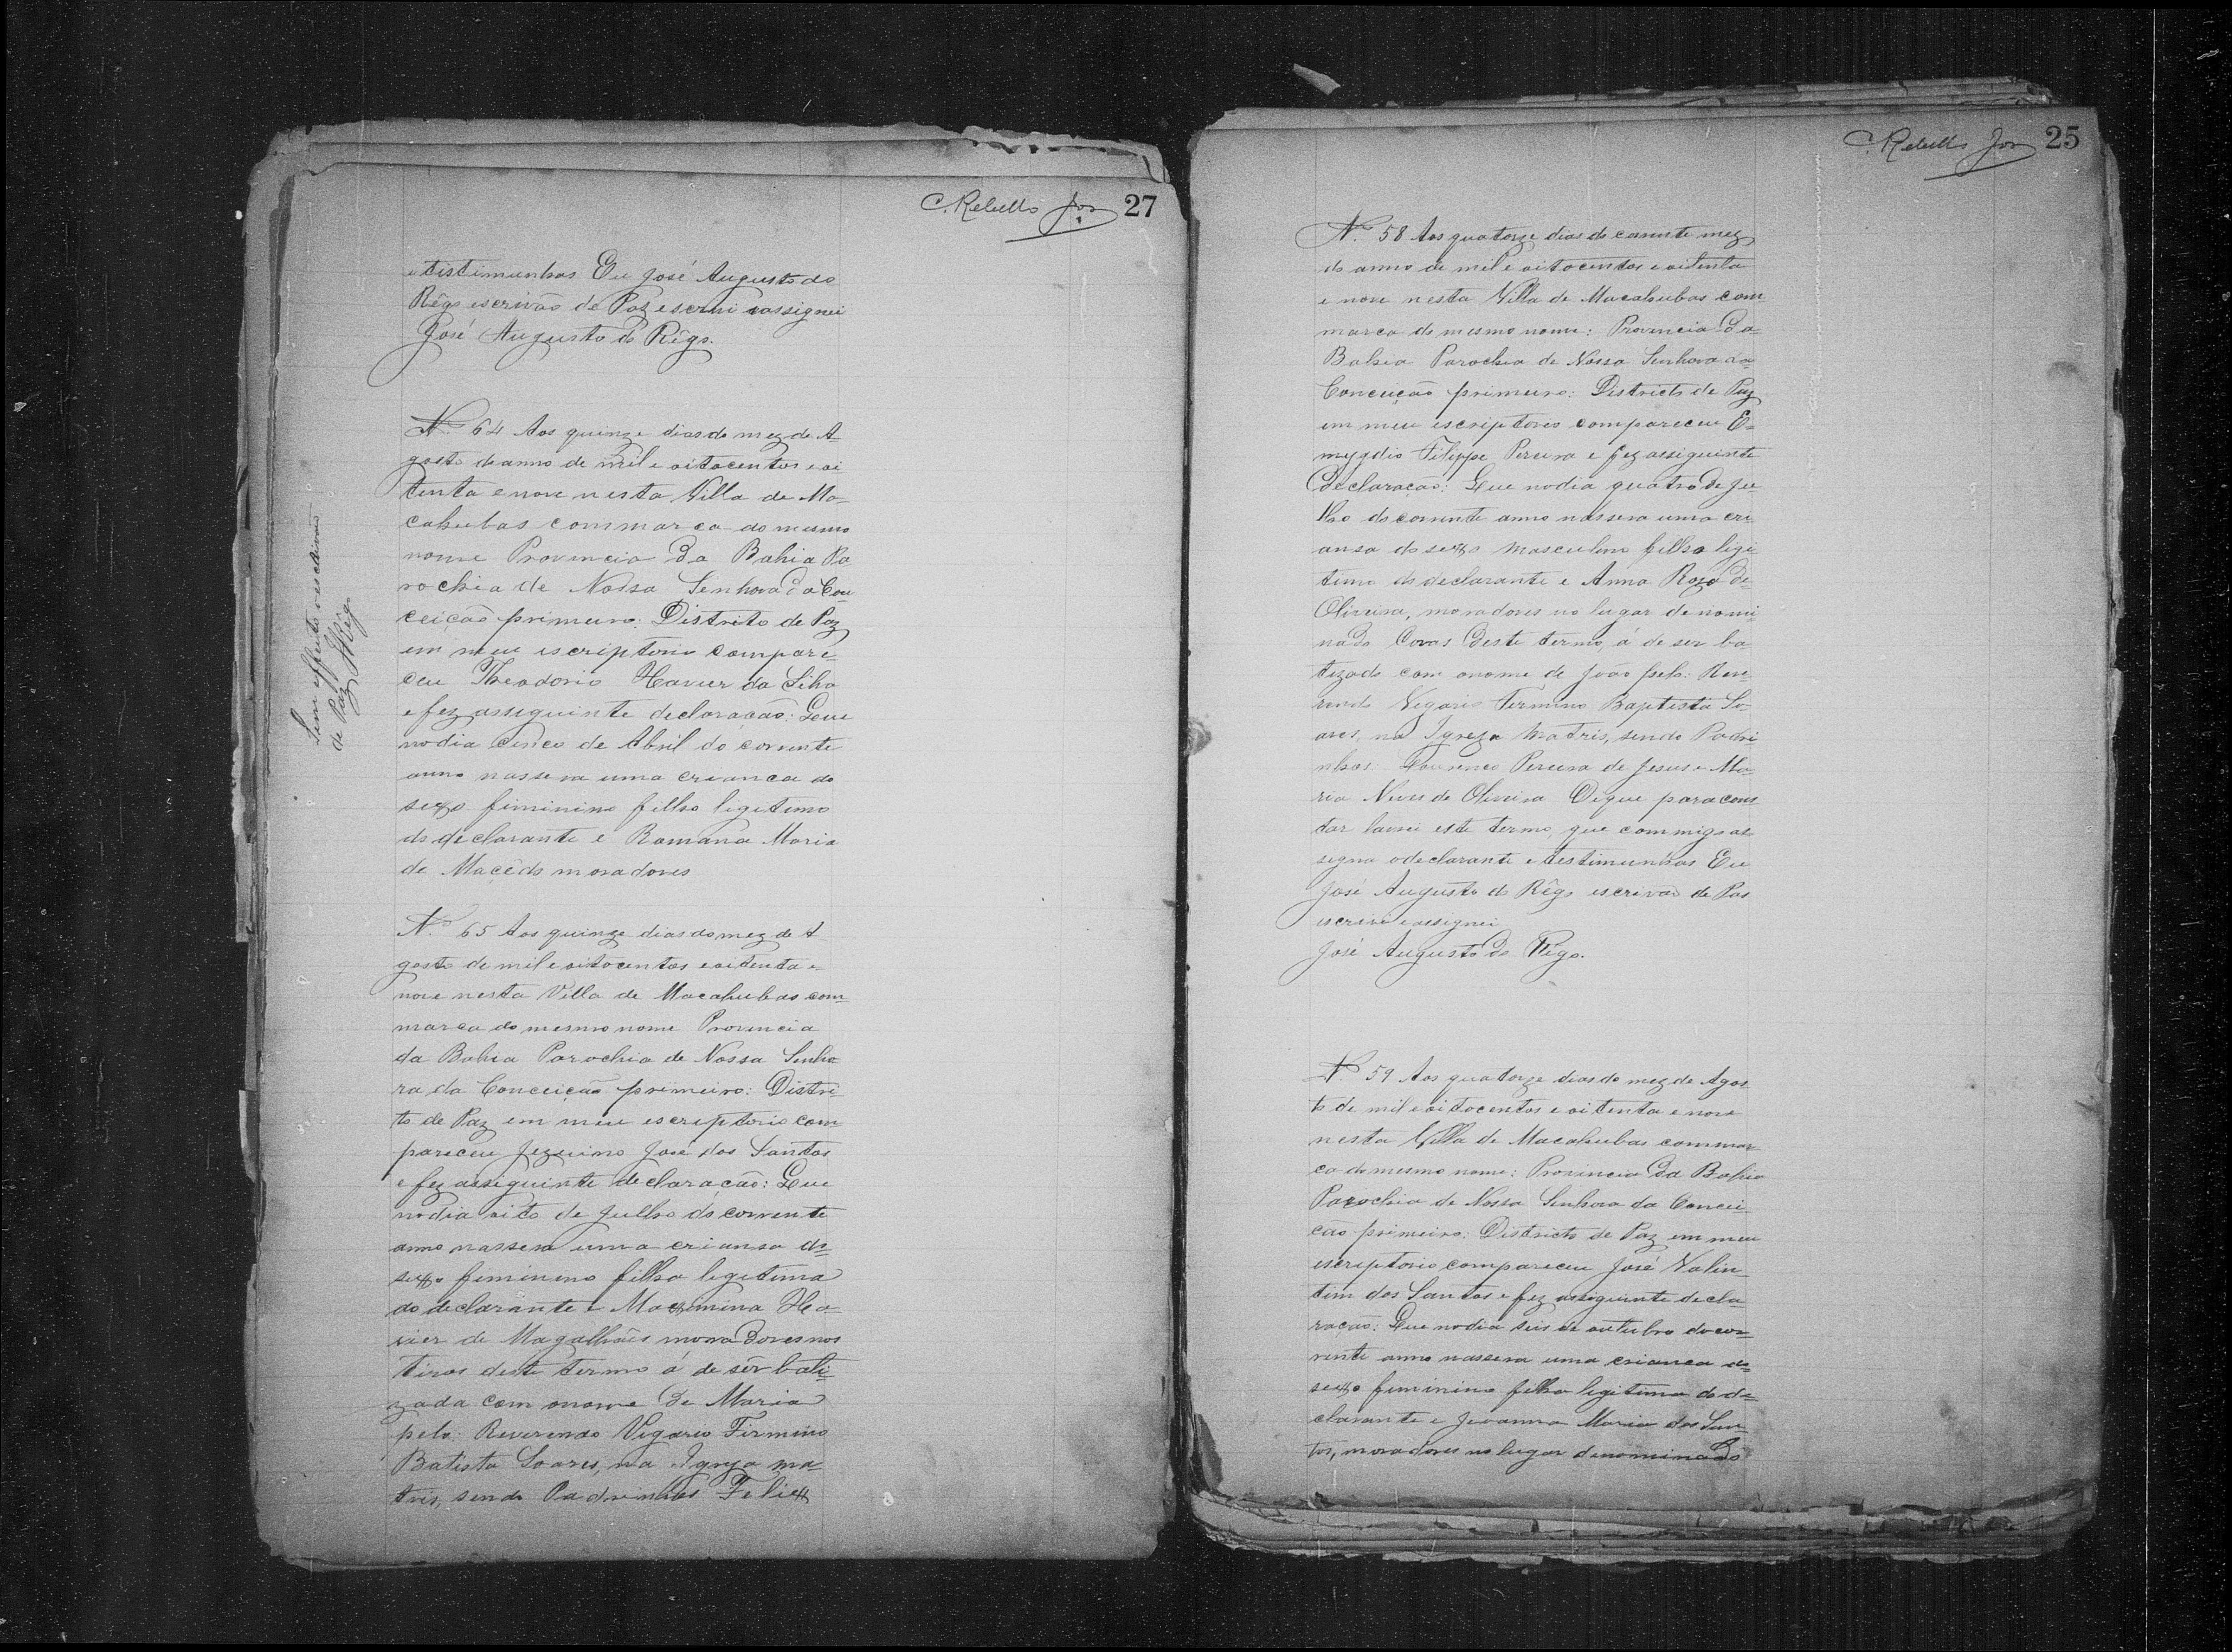 C. Rebello Jor 27
e tistimunhas Eu José Augusto do
Rêgo escrivão de Paz escrivi eassignei
José Augusto do Rêgo.
Nº 64 Aos quinze dias do mez de A-
gosto deanno de mil e oitocentos e oi
tenta e nove nesta Villa de Ma-
cahubas commarca do mesmo
nome Provincia Da Bahia Pa
rochia de Nossa Senhora Da Con-
ceição primeiro: Distrito de Paz
em meu escriptorio compare-
ceu Theodorio Havier da Silva
e fez asseguinte declaração: Que
nodia cinco de Abril do corrente
anno nassera uma creanca do
sexo feminino filha legitima
do declarante e Romana Maria
de Macêdo moradores
Sem effeito o escrivão
de Paz Rêgo
N. 65 Aos quinze dias do mez de A
gosto de mil e oitocentos e oitenta e
nove nesta Villa de Macahubas com-
marca do mesmo nome Provincia
da Bahia Parochia de Nossa Senho
ra da Conceição primeiro: Distri-
to de Paz em meu escriptorio com
pareceu Jezuino José dos Santos
e fez asseguinte declaração: Que
nodia oito de Julho do corrente
anno nassera uma criansa do
sexo feminino filha legitima
do declarante e Maximina Ha-
vier de Magalhães moradores nos
tiros deste termo á de sêr bati-
zada com onome De Maria
pelo: Reverendo Vigario Firmino
Batista Soares, na Igreja ma-
tris, sendo Padrinhos Felix
C. Rebello Jor 25
Nº 58 Aos quatorze dias do corrente mez
do anno de mil e oitocentos e oitenta
e nove nesta Villa de Macahubas com
marca do mesmo nome: Provincia Da
Bahia Parochia de Nossa Senhora da
Conceição primeiro: Districto de Paz
em meu escriptorio compareceu E-
mygdio Filippe Pereira e fez asseguinte
Declaração: Que nodia quatro De Ju-
lho do corrente anno nassera uma cri
ansa do sexo masculino filho ligi
timo do declarante e Anna Roza De
Oliveira, moradores no lugar denomi
nado Covas Deste termo, á de ser ba
tizado com onome de João pelo: Reve-
rendo Vegario Fermino Baptista So-
ares, na Igreja Matris, sendo Padri-
nhos: Lourenco Pereira de Jesus e Ma-
ria Neves de Oliveira Deque para cons
tar lavrei este termo, que commigo as-
segna odeclarante e testimunhas Eu
José Augusto do Rêgo escrivão de Pas
escrivi e assignei
José Augusto Do Rêgo.
N. 59 Aos quatorze dias do mez de Agos
to de mil e oitocentos e oitenta e nove
nesta Villa de Macahubas commar-
ca do mesmo nome: Provincia Da Bahia
Parochia de Nossa Senhora da Concei-
ção primeiro: Districto de Paz em meu
escriptorio compareceu José Valin-
tim dos Santos e fez asseguinte decla-
ração: Que nodia seis de outubro do cor-
rente anno nassera uma crianca do
sexo feminino filha legitima do de-
clarante e Joanna Maria dos San-
tos, moradores no lugar denominado